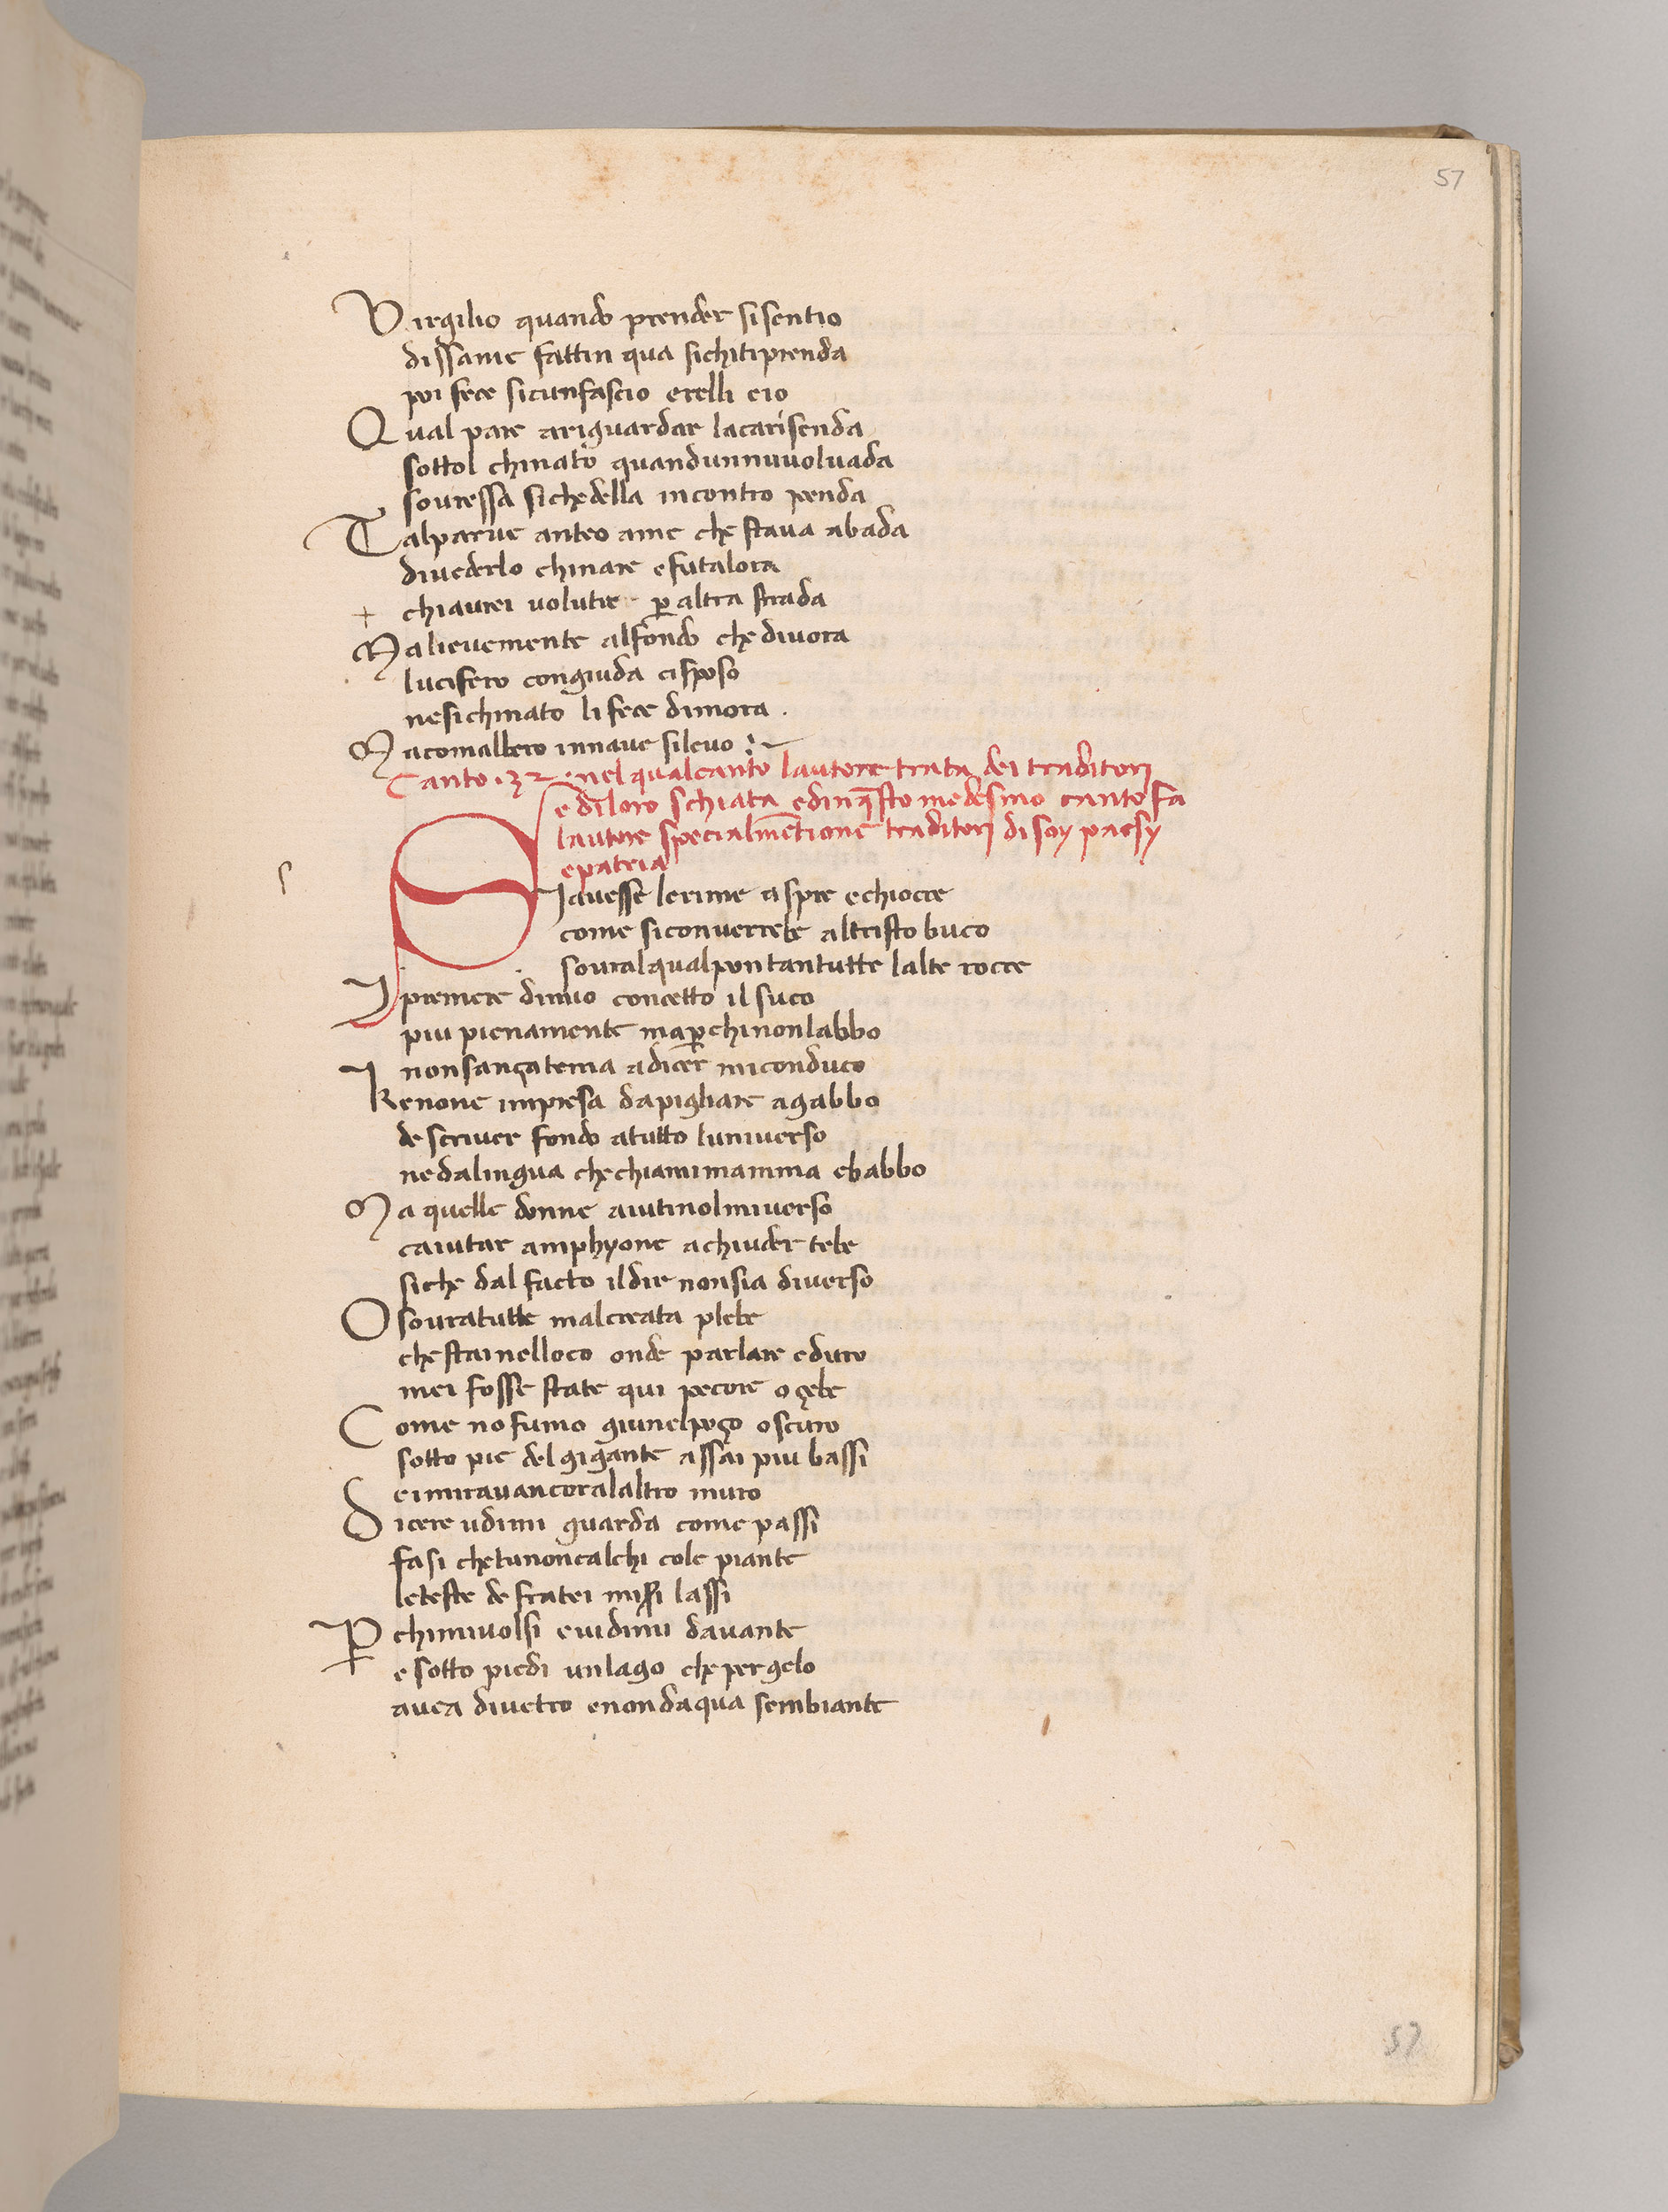 57
Virgilio quando prender sisentio
dissame fattin qua sichitiprenda
poi fece sicunfascio erelli eio
Qual pare ariguardar lacarisenda
sottol chinato quandunnuuoluada
souressa sichedella incontro penda
Talparue anteo ame che staua abada
diuederlo chinare efutalora
+ chiaurei uolutir p altra strada
Malieuemente alfondo che diuora
lucifero congiuda ciposo
nesichinato li fece dimora .
Macomalbero innaue sileuo :~
Canto .32. nel qualcanto lautore trata dei traditori
e diloro schiata edinqsto medesmo canto fa
lautore specialmẽtione traditori di soy paesy
epatria
SIauesse lerime aspre echiocce
come siconuerrebe altristo buco
souralqualpontantutte lalte rocce
I premere dimio concetto il suco
piu pienamente map chinonlabbo
nonsançatema adicer miconduco
Kenone impresa dapigliare agabbo
descriuer fondo atutto luniuerso
nedalingua chechiamimamma ebabbo
Ma quelle donne aiutinolmiuerso
caiutar amphyone achiuder tebe
siche dal facto ildir nonsia diuerso
O souratutte malcreata plebe
chestainelloco onde parlare eduro
mei fosse state qui pecore oçebe
Come nofumo giunelpoço oscuro
sotto pie del gigante assai piu bassi
eimirauancoralaltro muro
Dicere udimi guarda come passi
fasi chetunoncalchi cole piante
leteste de fratei misi lassi
P chimiuolsi euidimi dauante
e sotto piedi unlago che pergelo
auea diuetro enondaqua sembiante
57